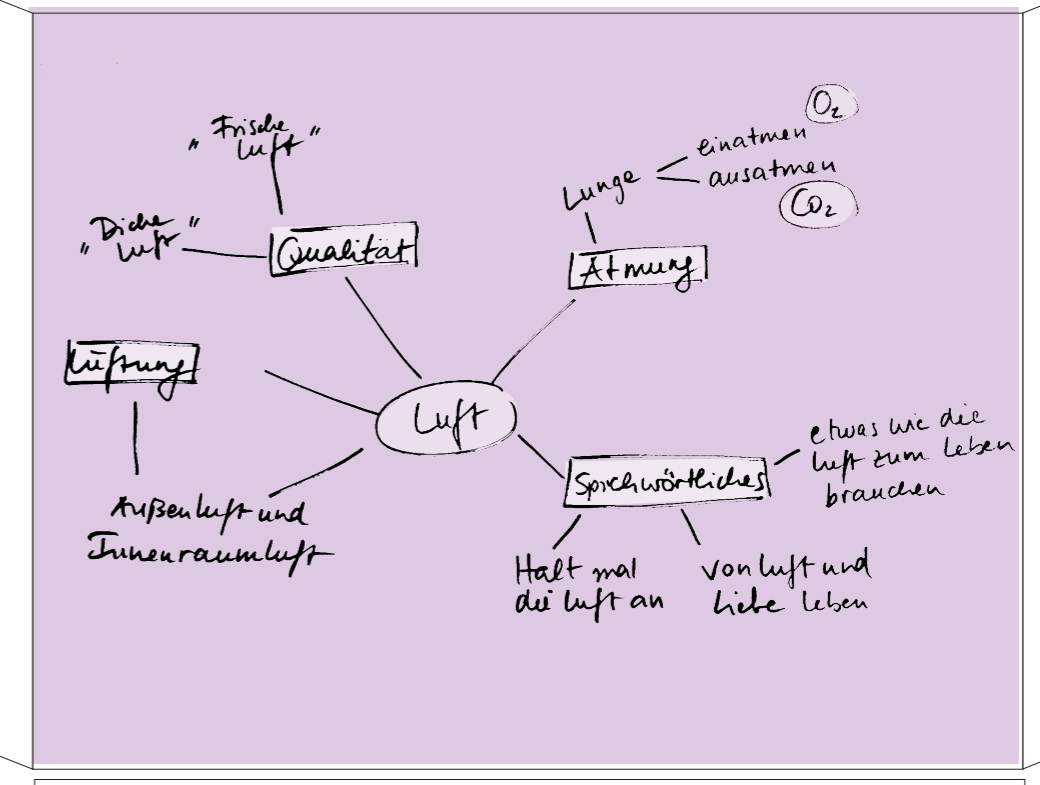 „Frische
Luft"
„Dicke
Luft"
Qualität
Lunge
einatmen O₂
ausatmen
CO₂
Atmung
Lüftung
Luft
Außenluft und
Innenraumluft
Sprichwörtliches
etwas wie die
Luft zum Leben
brauchen
Halt mal
die Luft an
von Luft und
Liebe leben